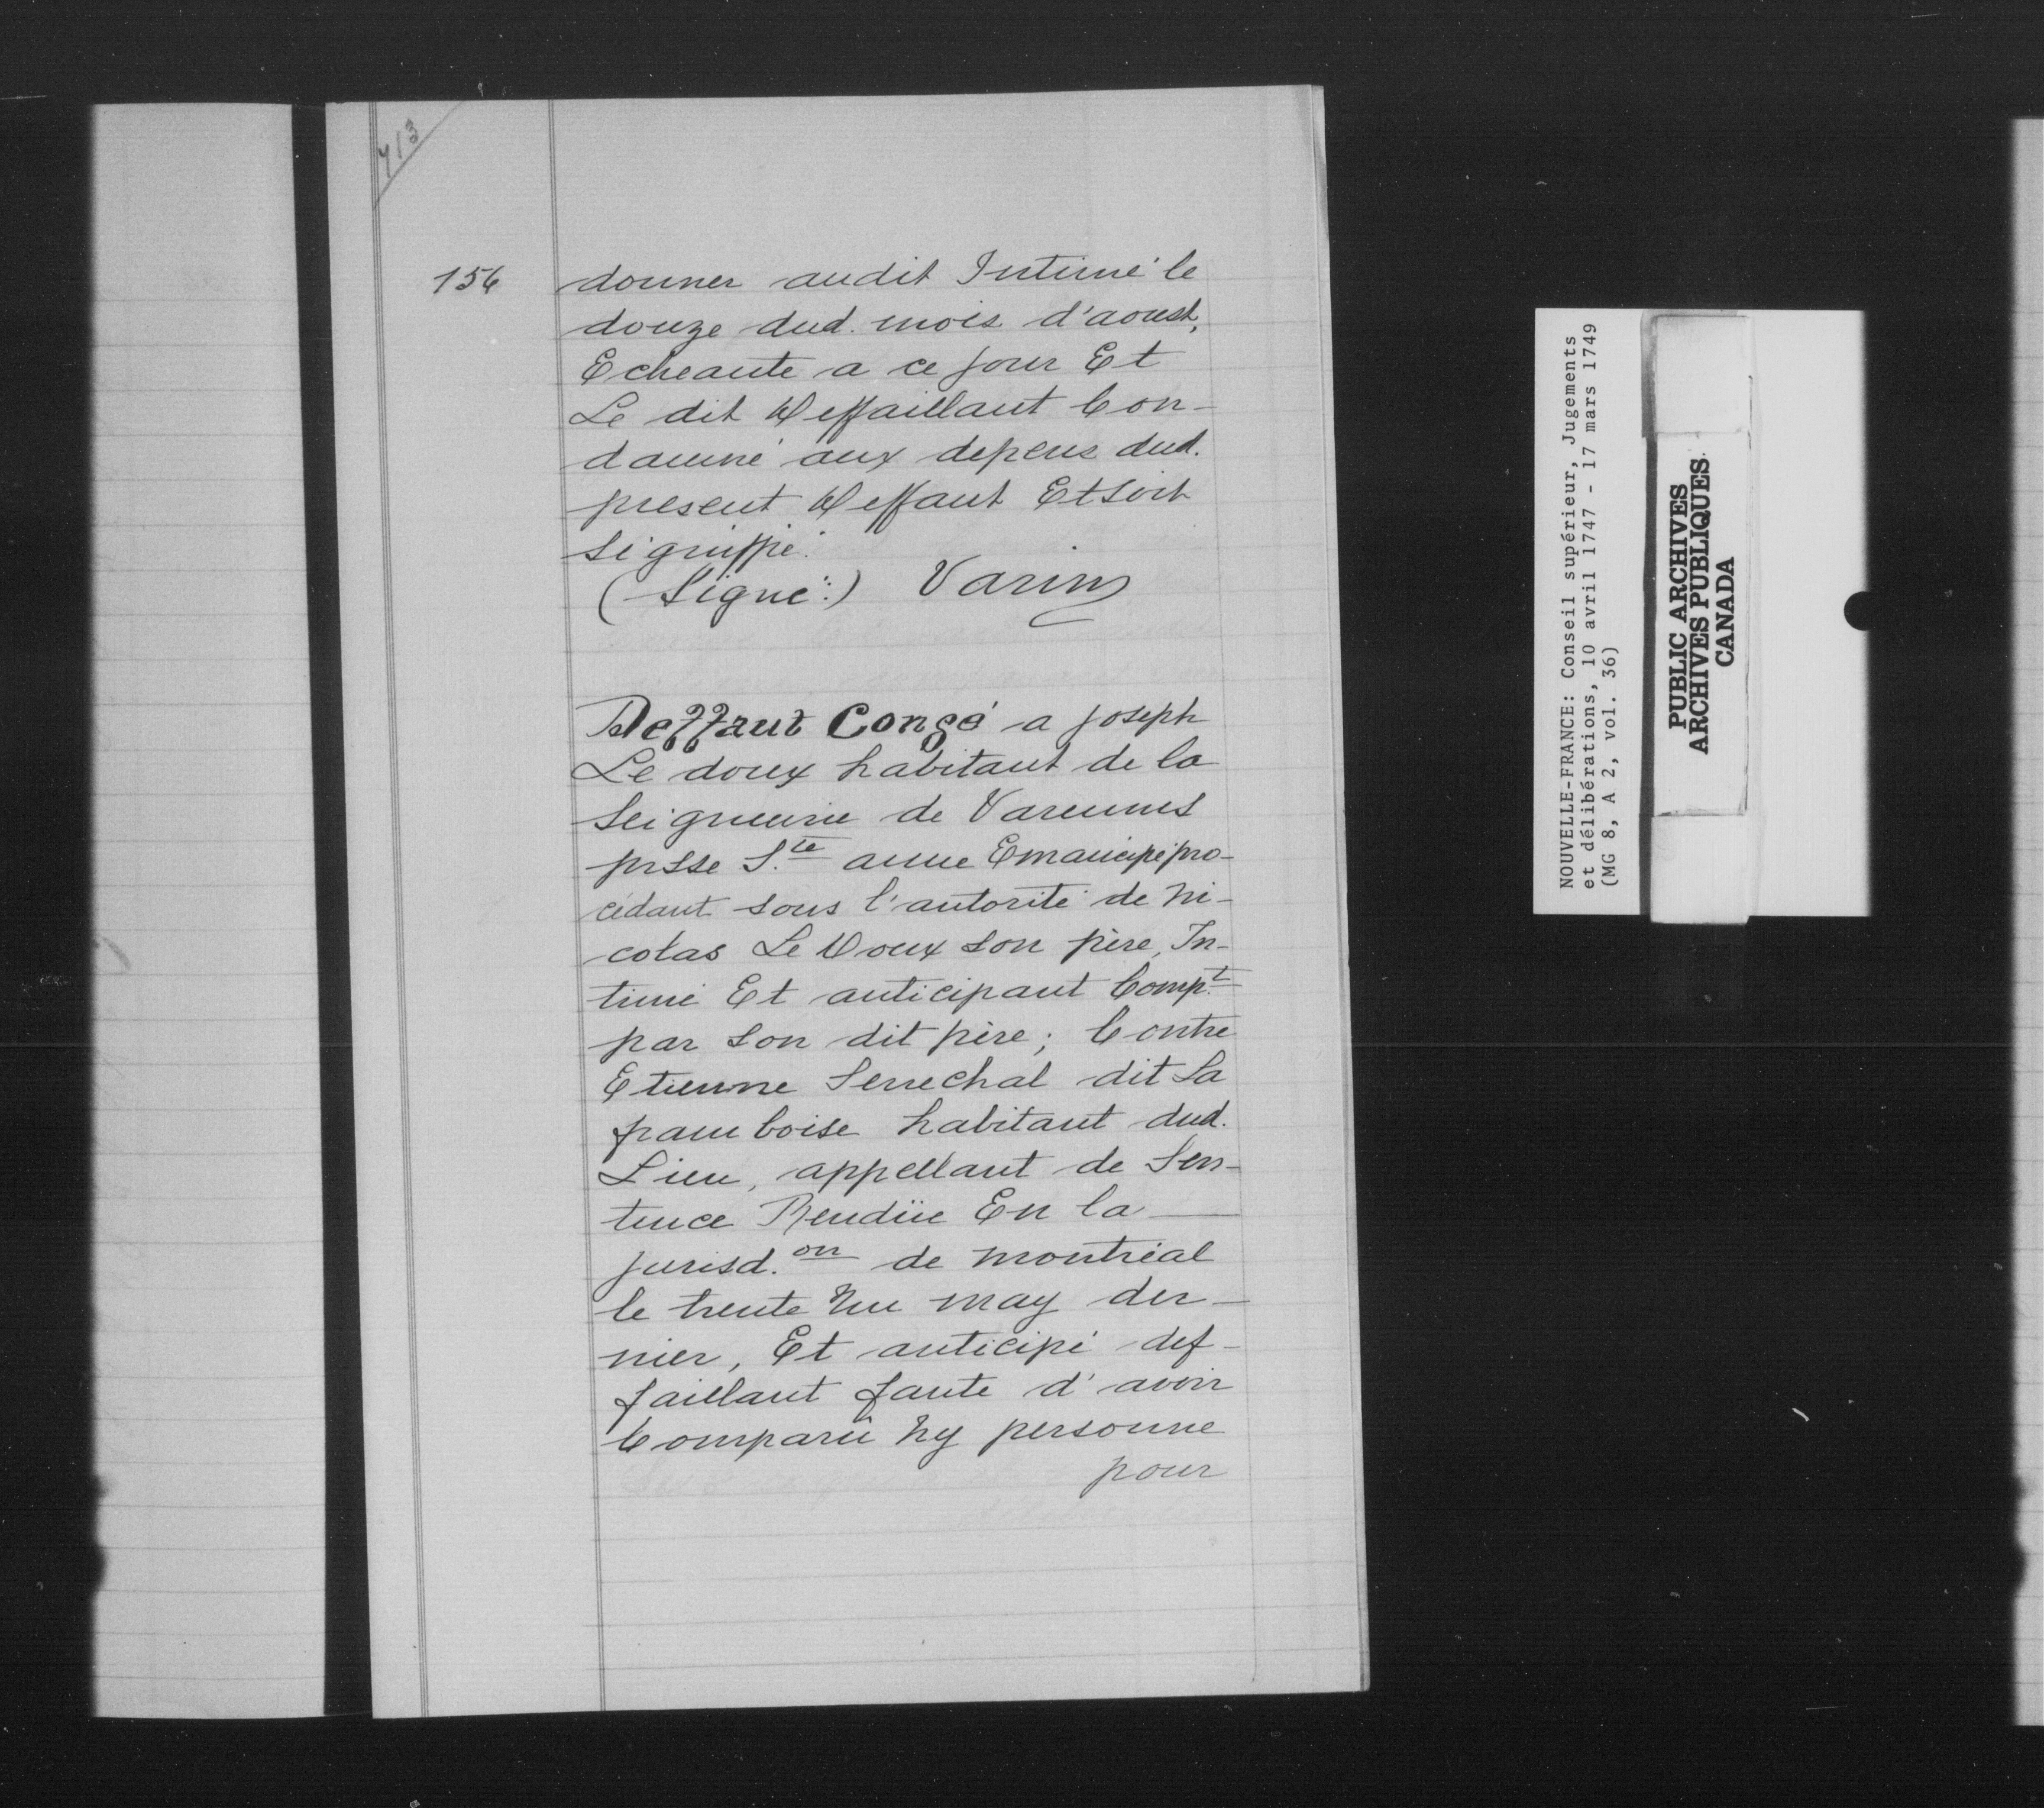 413
156
donner audit Intimé le
douze dud. mois d'aoust,
Echeante a ce jour Et
Le dit Deffaillant Con-
damné aux depens dud.
present Deffaut Et soit
signiffié.
(Signé:) Varin
Deffaut Congé a joseph
Le doux habitant de la
Seigneurie de Varennes
prsse S.te anne Emancipé pro-
cédant sous l'autorité de ni-
colas Le Doux son père, In-
timé Et anticipant Comp.t
par son dit père; Contre
Etienne Senechal dit La
framboise habitant dud.
Lieu, appellant de Sen-
tence Rendüe En la
jurisd.on de montréal
le trente Un may der-
nier, Et anticipé def-
faillant faute d'avoir
Comparû Ny personne
pour
NOUVELLE-FRANCE: Conseil supérieur, Jugements
et délibérations, 10 avril 1747 - 17 mars 1749
(MG 8, A 2, vol. 36)
PUBLIC ARCHIVES
ARCHIVES PUBLIQUES
CANADA